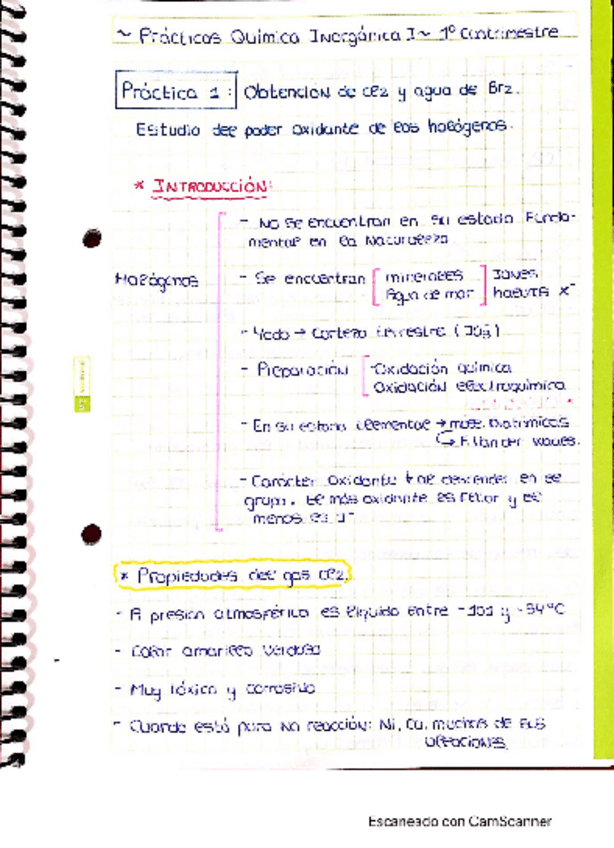 ~ Prácticas Química Inorgánica I ~ 1º Cuatrimestre
Práctica 1: Obtención de Cl2 y agua de Br2.
Estudio del poder oxidante de los halógenos.
* INTRODUCCIÓN:
- No se encuentran en su estado Funda-
mental en la Naturaleza
Halógenos
- Se encuentran [ minerales ] Iones
Agua de mar haluro X⁻
- Yodo → Corteza terrestre (IO3⁻)
- Preparación [ -Oxidación química
Oxidación electroquímica
- En su estado elemental → moléc. Diatómicas
↳ F. Van der Waals.
- Carácter Oxidante ↓ al descender en el
grupo. El más oxidante es Flúor y el
menos es I⁻
* Propiedades del gas Cl2.
- A presión atmosférica es líquido entre -101 y -34ºC
- Color amarillo verdoso
- Muy tóxico y corrosivo
- Cuando está puro no reacción: Ni, Cu, muchas de sus
aleaciones.
Escaneado con CamScanner